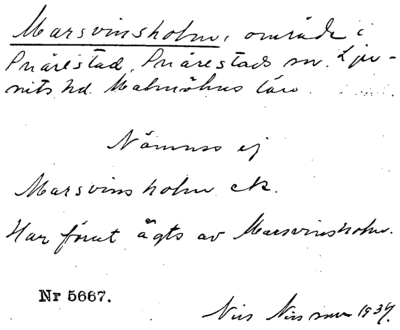 Marsvinsholm, område i
Snårestad, Snårestads sn. Lju-
nits hd. Malmöhus län.
Nämnes ej
Marsvinsholm ek.
Har förut ägts av Marsvinsholm.
Nr 5667.
Nils Nilsson 1934.